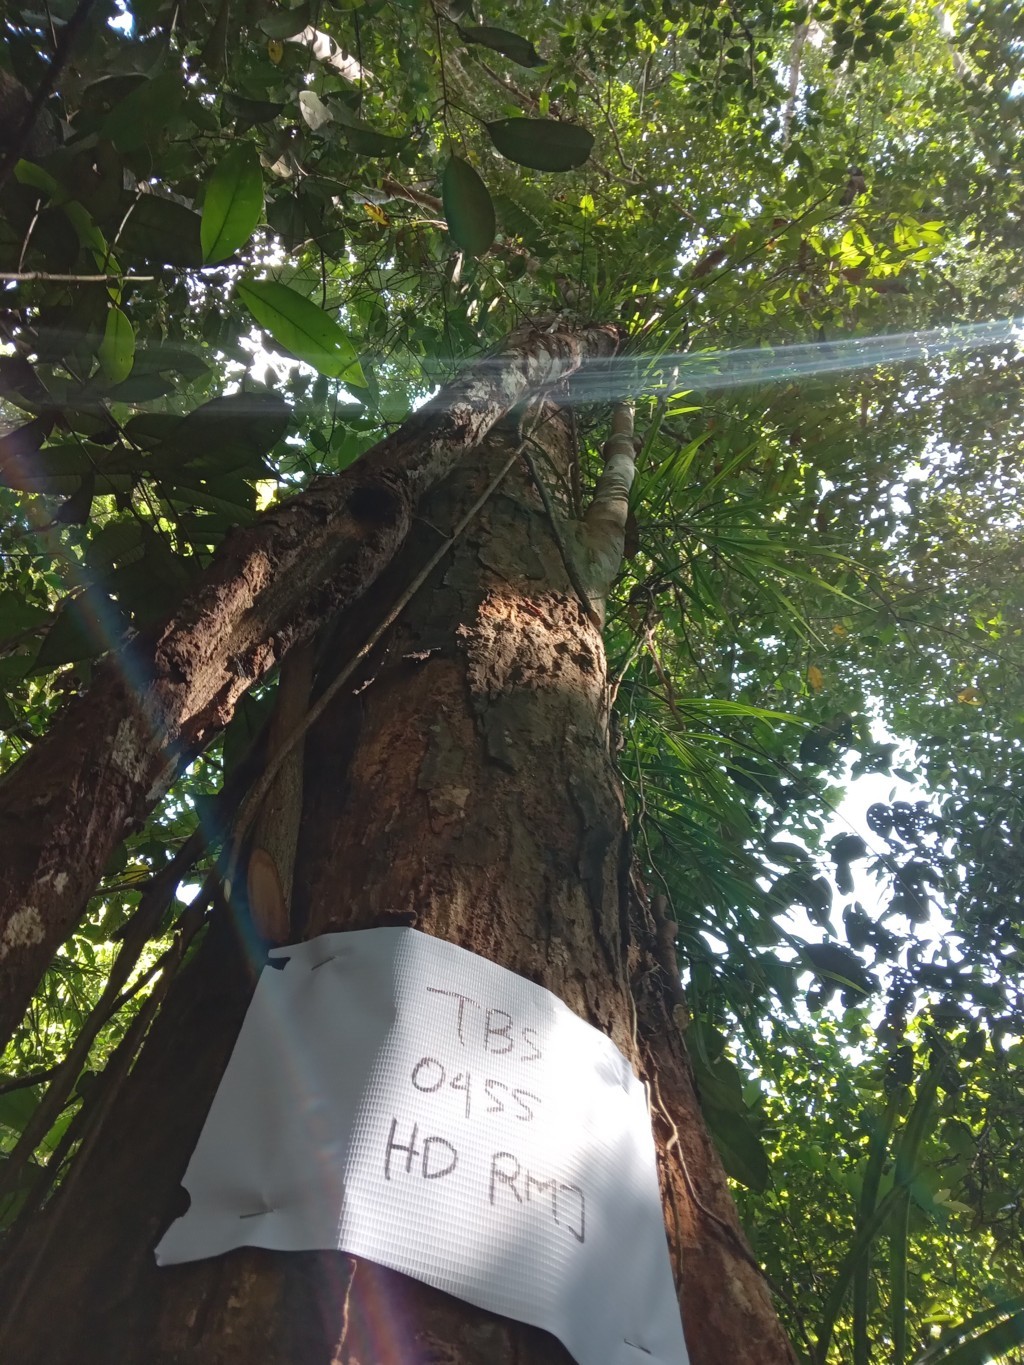 TBS
0455
HD RMJ